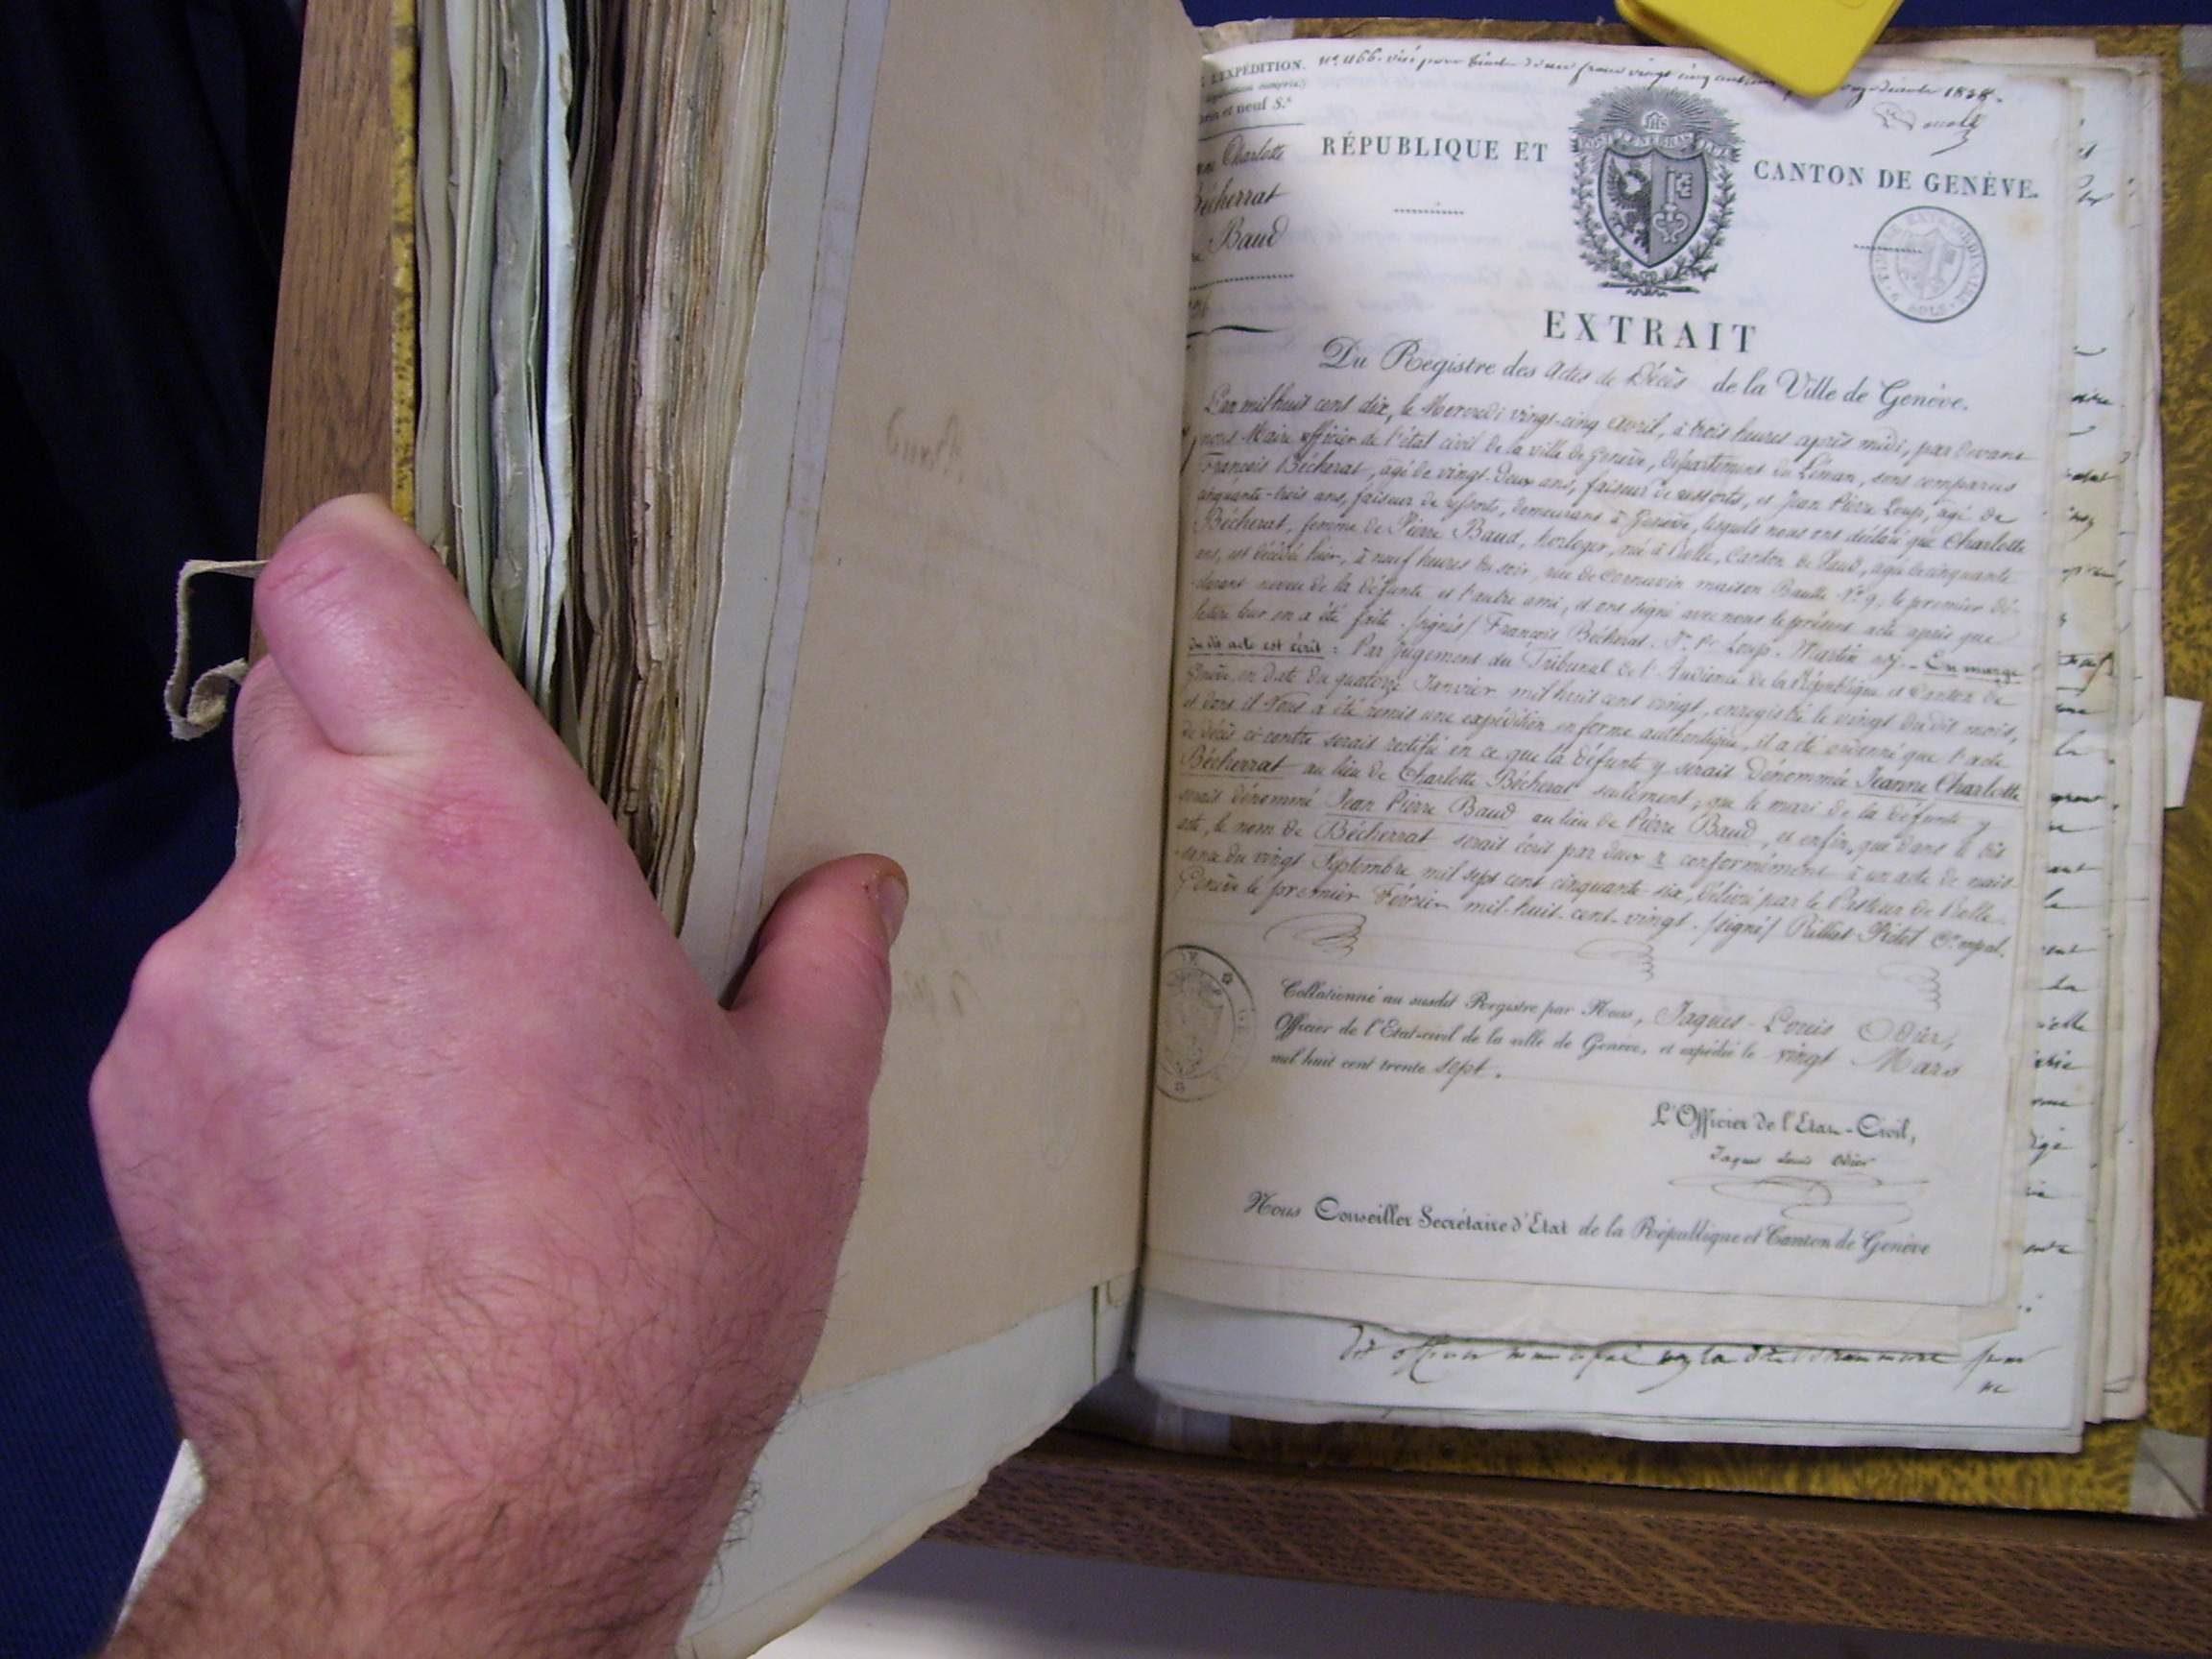 L'EXPÉDITION.
et neuf S.s
Charlotte
Bécherrat
Baud
No. 466. visé pour timbre 1838.
RÉPUBLIQUE ET CANTON DE GENÈVE.
POST TENEBRAS LUX
IHS
EXTRAIT
Du Registre des Actes de Décès de la Ville de Genève.
L'an mil huit cent dix, le Mercredi vingt-cinq Avril, à trois heures après midi, par devant
nous Maire officier de l'état civil de la ville de Genève, département du Léman, sont comparus
François Bécherat, âgé de vingt-deux ans, faiseur de ressorts, et Jean Pierre Loup, âgé de
cinquante-trois ans, faiseur de ressorts, demeurans à Genève, lesquels nous ont déclaré que Charlotte
Bécherat, femme de Pierre Baud, horloger, née à Rolle, Canton de Vaud, âgée de cinquante
ans, est décédée hier, à neuf heures du soir, rue de Cornavin maison Bautte No. 9, le premier dé-
-clarant neveu de la défunte et l'autre ami, et ont signé avec nous le présent acte après que
lecture leur en a été faite. /signés/ François Bécherat. J. P. Loup. Martin adj. - En marge
du dit acte est écrit : Par Jugement du Tribunal de l'Audience de la République et Canton de
Genève, en date du quatorze Janvier mil huit cent vingt, enregistré le vingt du dit mois,
et dont il Nous a été remis une expédition en forme authentique, il a été ordonné que l'acte
de décès ci-contre serait rectifié en ce que la défunte y serait dénommée Jeanne Charlotte
Bécherrat au lieu de Charlotte Bécherat seulement, que le mari de la défunte y
serait dénommé Jean Pierre Baud au lieu de Pierre Baud, et enfin, que dans le dit
acte, le nom de Bécherrat serait écrit par deux r conformément à un acte de nais-
-sance du vingt Septembre mil sept cent cinquante-six, délivré par le Pasteur de Rolle.
Genève le premier Février mil-huit-cent-vingt. /signé/ Rilliet Pictet
Collationné au susdit Registre par Nous, Jaques-Louis Odier,
Officier de l'Etat-civil de la ville de Genève, et expédié le vingt Mars
mil huit cent trente sept.
L'Officier de l'Etat-Civil,
Jaques Louis Odier
Nous Conseiller Secrétaire d'Etat de la République et Canton de Genève
dit officier municipal